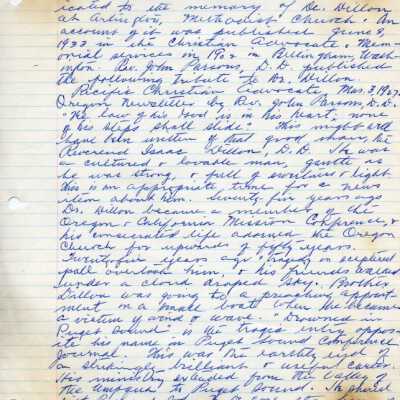 icated to the memory of Dr. Dillon
at Arlington, Methodist Church. An
account of it was published June 8,
1933 in the Christian Advocate. Mem-
orial services in 1902 in Bellingham, Wash-
ington. Rev. John Parsons, D.D. published
the following tribute to Dr. Dillon.
Pacific Christian Advocate Mar. 3, 1927.
Oregon Newsletter by Rev. John Parsons, D.D.
"The law of his God is in his heart; none
of his steps shall slide". This might
have been written of that good man, the
Reverend Isaac Dillon, D.D. He was
a cultured & lovable man, gentle as
he was strong & full of sweetness & light.
This is an appropriate time for a news
item about him. Seventy five years ago
Dr. Dillon became a member of the
Oregon & California Mission Conference, &
his consecrated life adorned the Oregon
Church for upwards of fifty years.
Twenty five years ago "tragedy in sceptered
pall overtook him, & his friends walked
under a cloud draped sky. Brother
Dillon was going to a preaching appoint-
ment in a small boat when he became
a victim of wind & wave. "Drowned in
Puget Sound" is the tragic entry oppos-
ite his name in Puget Sound Conference
Journal. This was the earthly end of
a strikingly brilliant & useful career.
His ministry extended from the Valley of
the Umpqua to Puget Sound. He shared